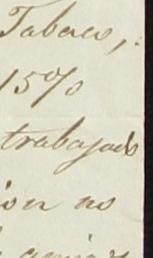 Tabaco,
15%
trabajado
ion no